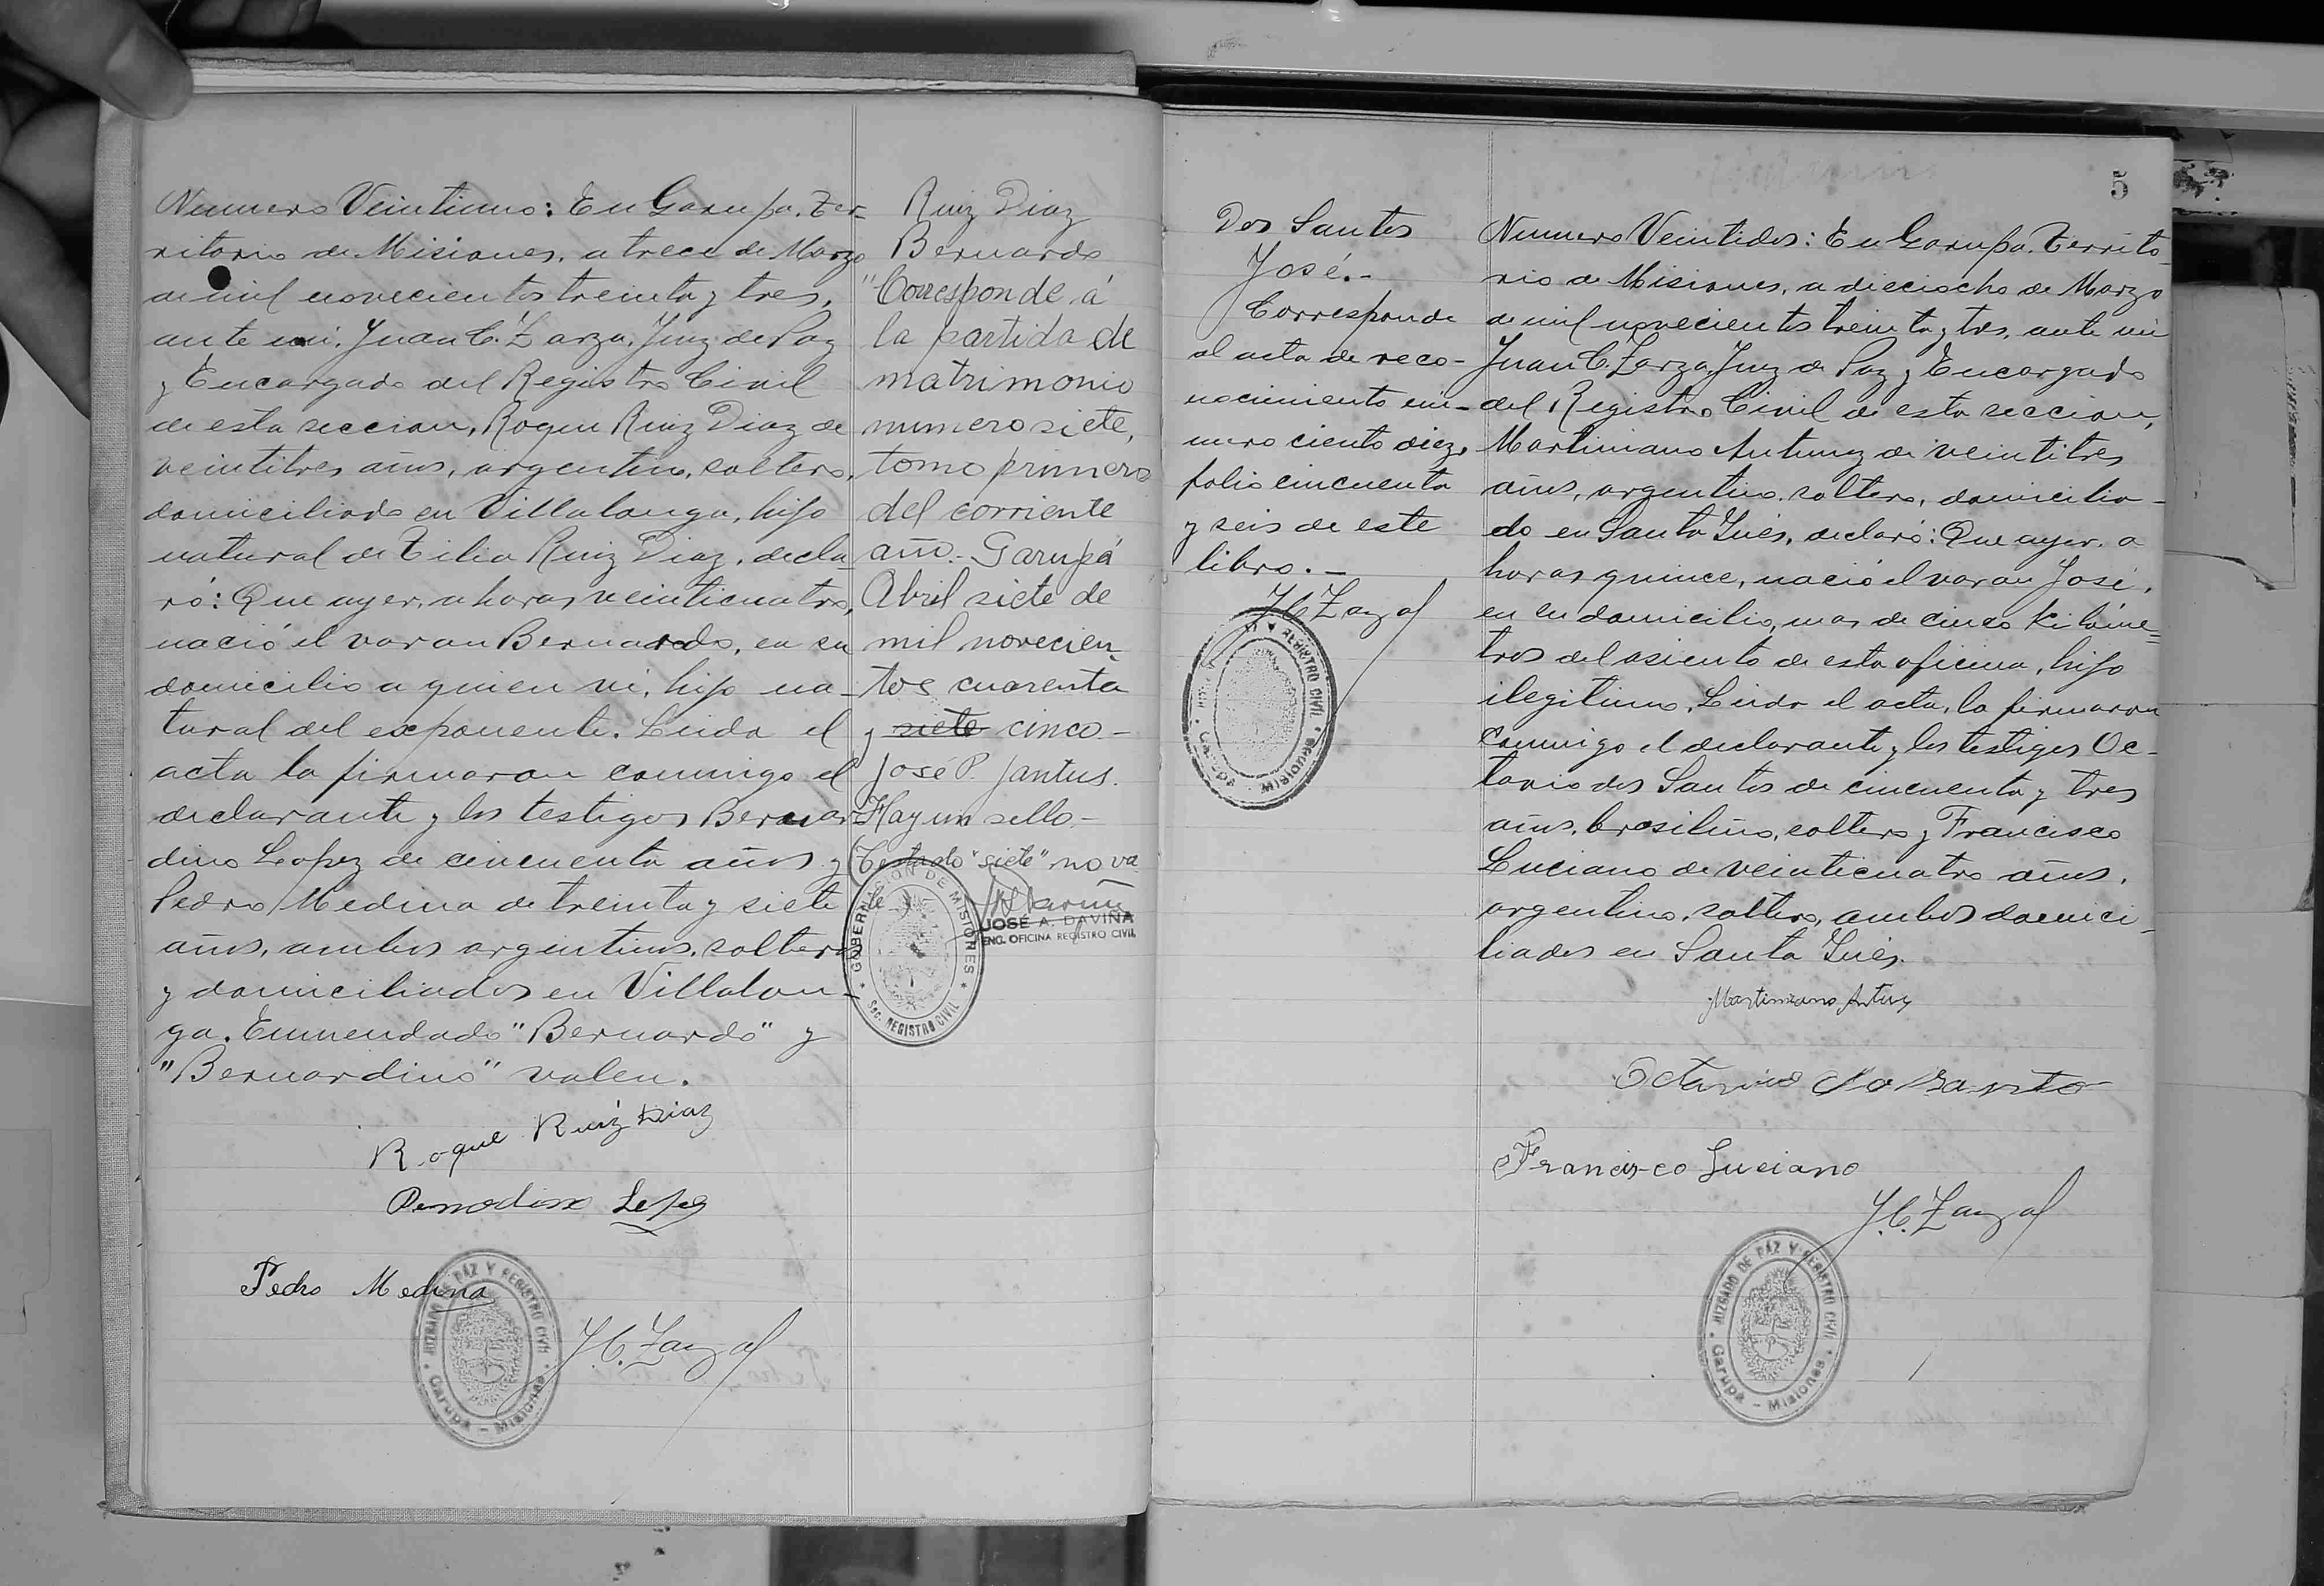 Numero Veintiuno: En Garupa. Ter-
ritorio de Misiones, a trece de Marzo
de mil novecientos treinta y tres,
ante mi, Juan C. Zarza, Juez de Paz
y Encargado del Registro Civil
de esta seccion, Roque Ruiz Diaz de
veintitres años, argentino, soltero,
domiciliado en Villalonga, hijo
natural de Tilia Ruiz Diaz, decla-
ró: Que ayer, a horas veinticuatro,
nació el varon Bernardo, en su
domicilio a quien vi, hijo na-
tural del exponente. Leida el
acta la firmaron conmigo el
declarante y los testigos Bernar-
dino Lopez de cincuenta años y
Pedro Medina de treinta y siete
años, ambos argentinos, solteros
y domiciliados en Villalon-
ga. Enmendado "Bernardo" y
"Bernardino" valen.
Roque Ruiz Diaz
Lopez
Pedro Medina
J.C. Zarza
JUZGADO DE PAZ Y REGISTRO CIVIL
Garupa - Misiones
Ruiz Diaz
Bernardo
"Corresponde á
la partida de
matrimonio
numero siete,
tomo primero
del corriente
año. - Garupá
Abril siete de
mil novecien-
tos cuarenta
y siete cinco. -
José P. Jantus.
Hay un sello. -
(Testado "siete" no va
le)
JOSÉ A. DAVIÑA
ENC. OFICINA REGISTRO CIVIL
GOBERNACION DE MISIONES
Sec. REGISTRO CIVIL
5
Dos Santos
José. -
Corresponde
al acta de reco-
nocimiento nú-
mero ciento diez,
folio cincuenta
y seis de este
libro. -
J.C. Zarza
REGISTRO CIVIL
Garupa - MISIONES
Numero Veintidos: En Garupa. Territo-
rio de Misiones, a dieciocho de Marzo
de mil novecientos treinta y tres, ante mi
Juan C. Zarza, Juez de Paz y Encargado
del Registro Civil de esta seccion,
Martiniano Antunez de veintitres
años, argentino, soltero, domicilia-
do en Santa Inés, declaró: Que ayer, a
horas quince, nació el varon José,
en su domicilio, mas de cinco kilóme-
tros del asiento de esta oficina, hijo
ilegitimo. Leida el acta, la firmaron
conmigo el declarante y los testigos Oc-
tavio dos Santos de cincuenta y tres
años, brasileño, soltero y Francisco
Luciano de veinticuatro años,
argentino, soltero, ambos domici-
liados en Santa Inés.
Martiniano
Francisco Luciano
J.C. Zarza
JUZGADO DE PAZ Y REGISTRO CIVIL
Garupa - Misiones